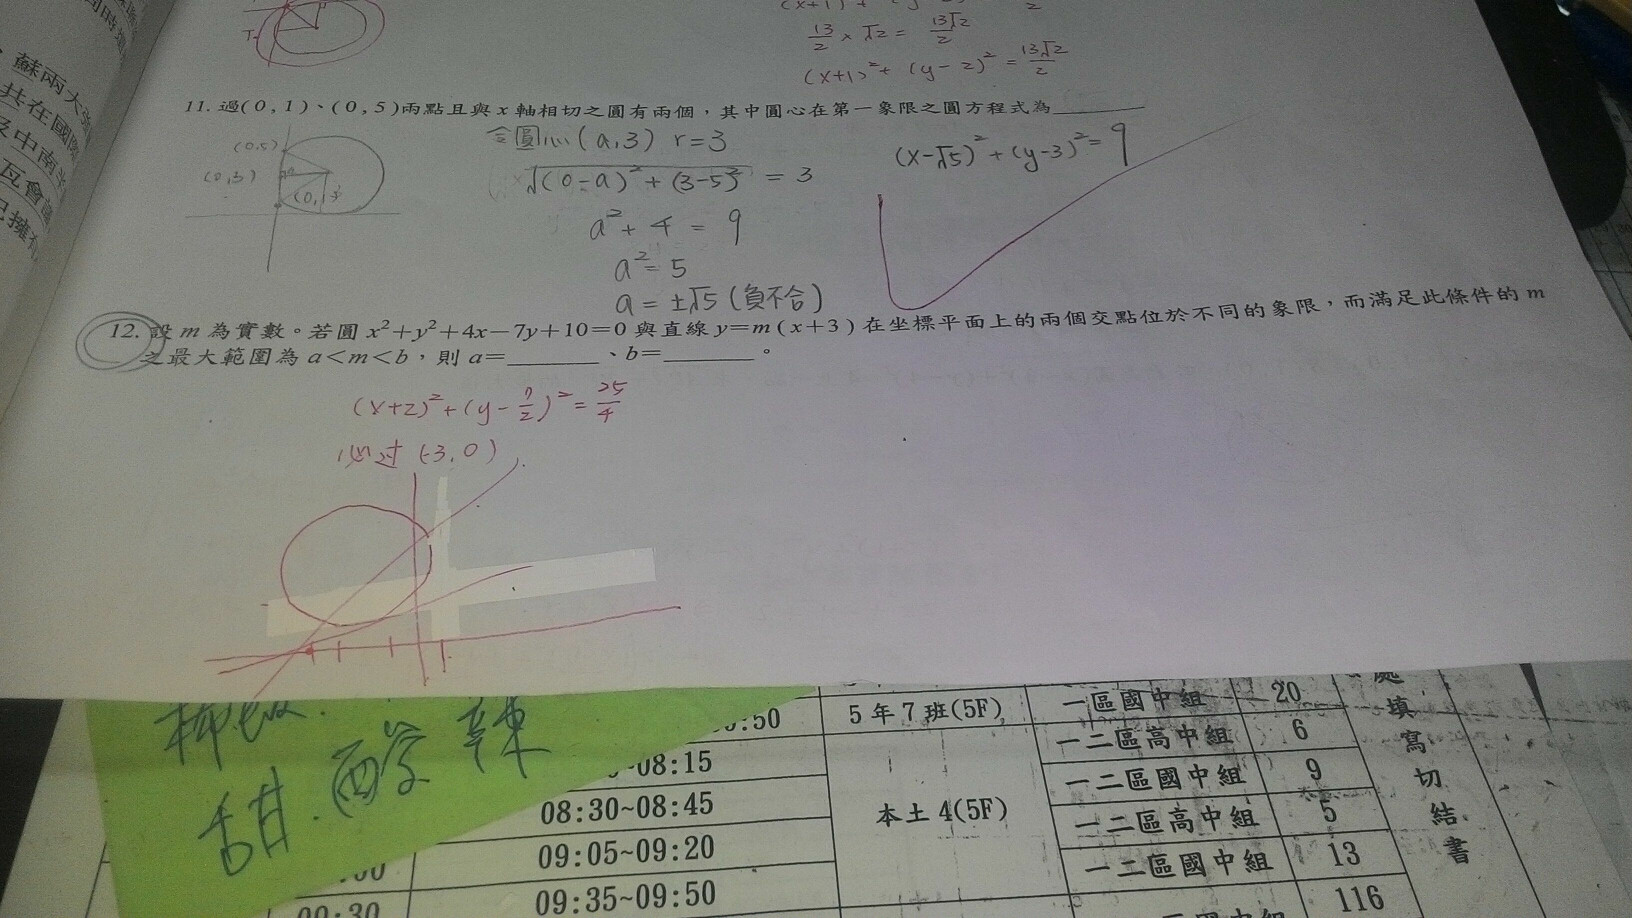 13/2 × √2 = 13√2/2
(x+1)²+(y-2)² = 13√2/2
蘇兩大
共在國際
及中南
瓦會
11. 過(0,1)、(0,5)兩點且與x軸相切之圓有兩個,其中圓心在第一象限之圓方程式為________
令圓心(a,3) r=3
(x-√5)²+(y-3)²=9
(0,5)
(0,3)
(0,1)
√(0-a)²+(3-5)² = 3
a²+4 = 9
a²=5
a=±√5(負不合)
12. 設m為實數。若圓x²+y²+4x-7y+10=0與直線y=m(x+3)在坐標平面上的兩個交點位於不同的象限,而滿足此條件的m
之最大範圍為a<m<b,則a=________、b=________。
(x+2)²+(y-7/2)²=25/4
必过(-3,0)
甜.酸 辣
:50 5年7班(5F) 一區國中組 20
~08:15 一二區高中組 6
08:30~08:45 本土4(5F) 一二區國中組 9
一二區高中組 5
09:05~09:20 一二區國中組 13
:00
09:30 09:35~09:50 116
處填寫切結書